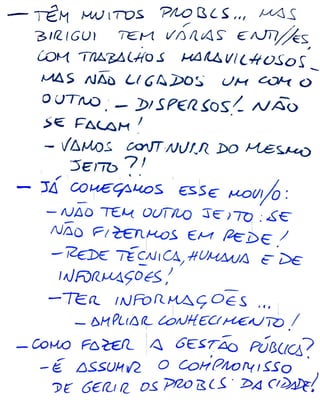 — TÊM MUITOS PROBLS... MAS
BIRIGUI TEM VÁRIAS ENTI//ES,
COM TRABALHOS MARAVILHOSOS –
MAS NÃO LIGADOS UM COM O
OUTRO: – DISPERSOS! – NÃO
SE FALAM!
– VAMOS CONTINUIR DO MESMO
JEITO?!
— JÁ COMEÇAMOS ESSE MOVI/O:
– NÃO TEM OUTRO JEITO: SE
NÃO FIZERMOS EM REDE!
– REDE TÉCNICA, HUMANA E DE
INFORMAÇÕES!
– TER INFORMAÇÕES...
– AMPLIAR CONHECIMENTO!
– COMO FAZER A GESTÃO PÚBLICA?
– É ASSUMIR O COMPROMISSO
DE GERIR OS PROBLS DA CIDADE!